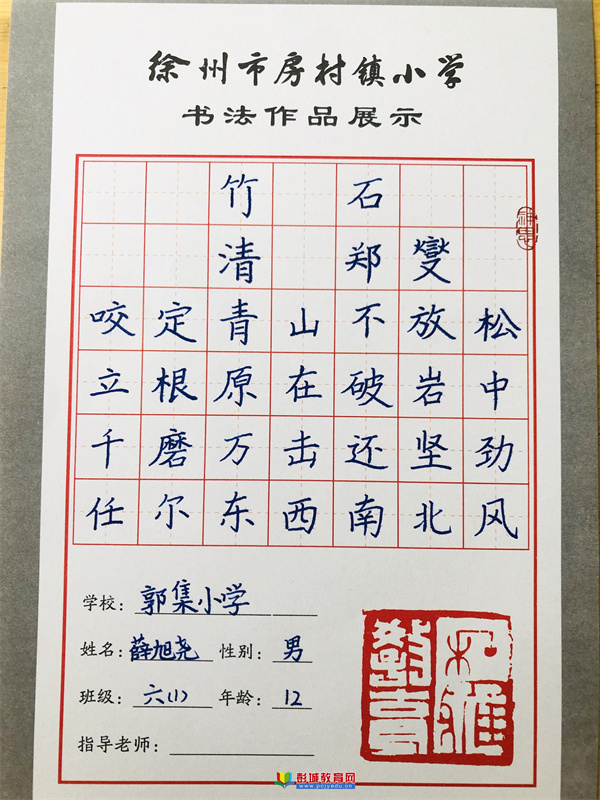 徐州市房村镇小学
书法作品展示
竹石
清 郑燮
咬定青山不放松
立根原在破岩中
千磨万击还坚劲
任尔东西南北风
学校：郭集小学
姓名：薛旭尧 性别：男
班级：六(1) 年龄：12
指导老师：
彭城教育网
www.pcjyedu.cn